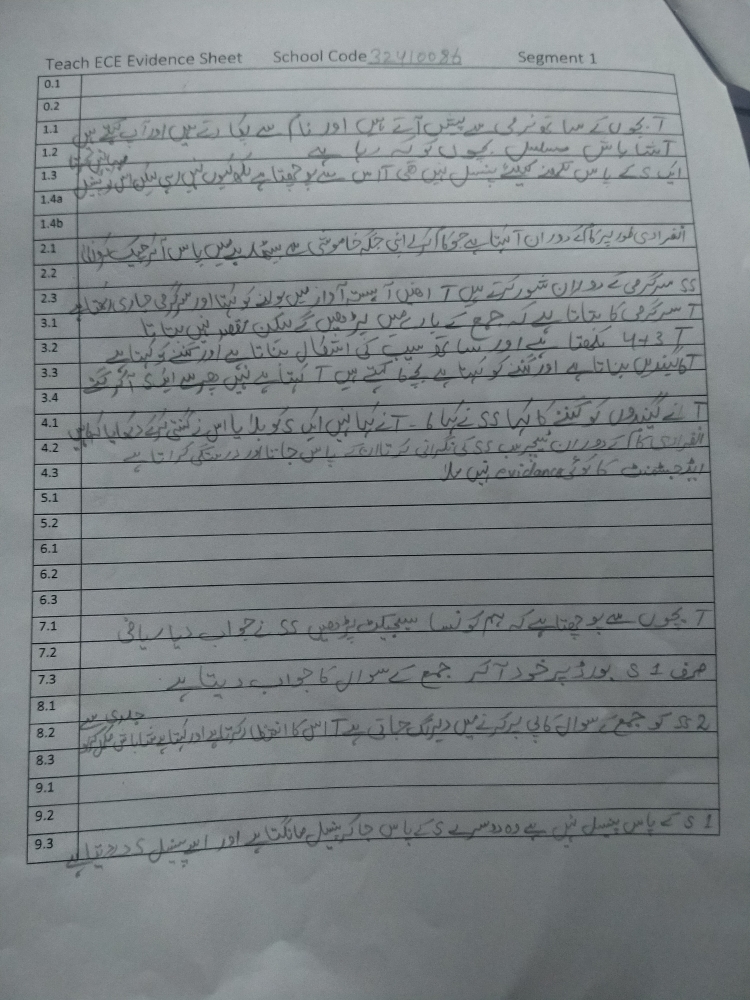 Teach ECE Evidence Sheet School Code 32410086 Segment 1
0.1
0.2
1.1 T بچوں کے ساتھ نرمی سے پیش آتے ہیں اور نام سے پکارتے ہیں اور آپ کہتے ہیں
1.2 T شاباش مسلسل بچوں کو کہہ رہا ہے
1.3 ایک S کے پاس لکھنے کیلئے پنسل نہیں تھی T اس سے پوچھتا ہے لکھ کیوں نہیں رہی لیکن اس کو پنسل
1.4a
1.4b
2.1 انفرادی طور پر کام کے دوران T کہتا ہے جو کام کرلے اپنی جگہ خاموشی سے بیٹھ میں پاس آکر چیک
2.2
2.3 SS سرگرمی کے دوران شور کرتے ہیں T انھیں آہستہ آواز میں بولنے کو کہتا اور سرگرمی جاری رکھتا ہے
3.1 T سرگرمی کا بتاتا ہے کہ جمع کے بارے میں پڑھیں گے لیکن مقصد نہیں بتاتا
3.2 T 3+4 لکھتا ہے اور ساتھ سیب کی اشکال بناتا ہے اور گننے کو کہتا ہے
3.3 T گیندیں بناتا ہے اور گننے کو کہتا ہے بچے کہتے ہیں T کہتا ہے نہیں پھر سے آکر گنے
3.4
4.1 T نے گیندوں کو گننے کا کہا SS نے کہا 6 - T نے کہا نہیں ایک S کو بلایا اس نے گنتی کرکے دکھایا
4.2 انفرادی کام کے دوران ٹیچر سب SS کی نگرانی کرتا ان کے پاس جاتا اور درستگی کراتا ہے
4.3 ایڈجسٹمنٹ کا کوئی evidance نہیں ملا
5.1
5.2
6.1
6.2
6.3
7.1 T بچوں سے پوچھتا ہے کہ ہم کونسا سبجیکٹ پڑھیں SS نے جواب دیا ریاضی
7.2
7.3 صرف 1 S بورڈ پر خود آکر جمع کے سوال کا جواب دیتا ہے
8.1
جلدی سے
8.2 2 SS کو جمع کے سوال کاپی پر کرنے میں دیر لگ جاتی ہے T اس کا انتظار کرتا ہے اور کہتا ہے شاباش مکمل کرو
8.3
9.1
9.2
9.3 1 S کے پاس پنسل نہیں ہے وہ دوسرے S کے پاس جاکر پنسل مانگتا ہے اور اسے پنسل S دے دیتا ہے